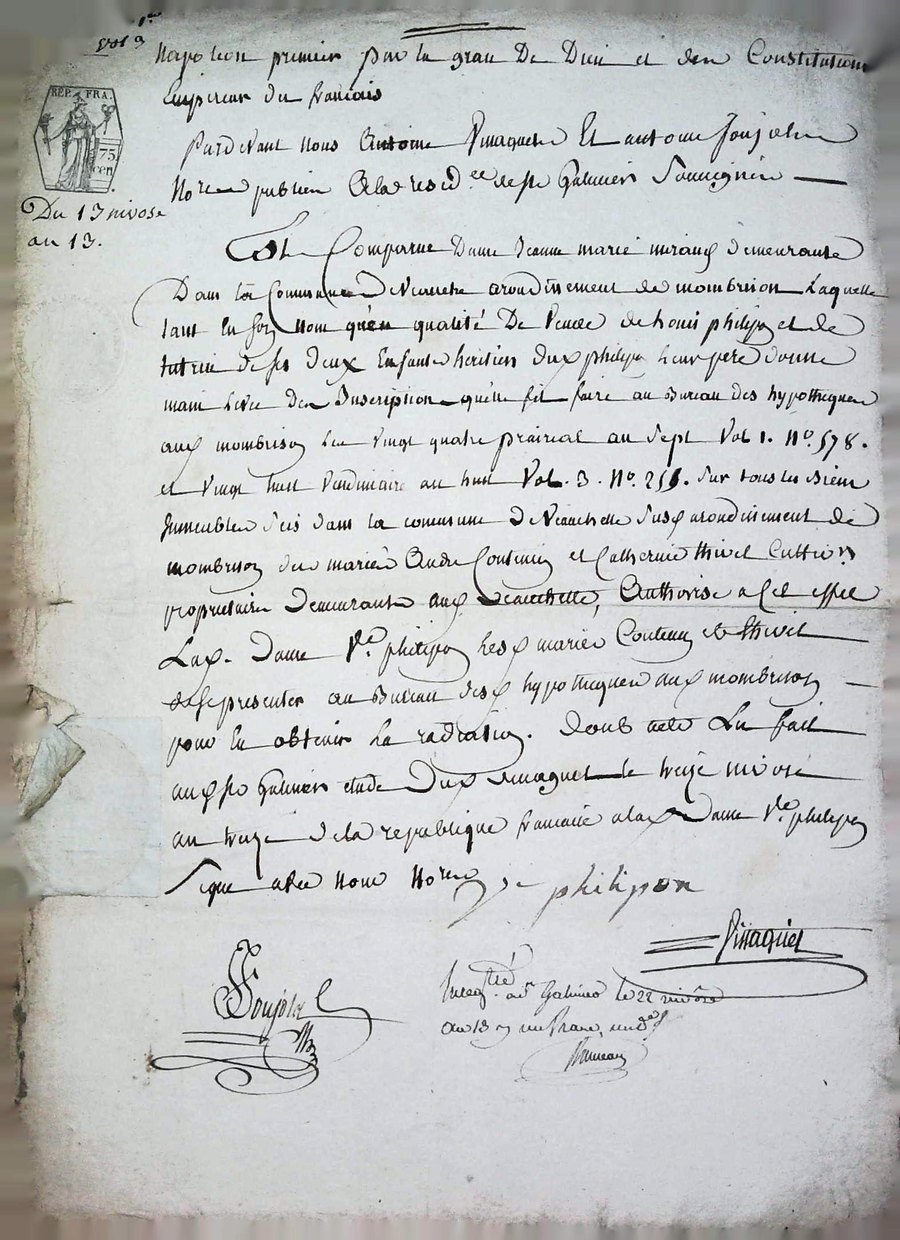 1er
vol 3
Napoleon premier par la grace De Dieu et den Constitutions
Empereur du francais
REP. FRA.
75
cen
Pardevant nous Antoine Pinaquet Et antoine Joujolen
Noren publien Alaresid.ce de st Galmier Soussignén
Du 13 nivose
an 13.
Est Comparue Dame Jeanne marie demeurante
Dans la Commune De Veauche arondissement de mombrison Laquelle
tant En son nom qu'en qualité De Veuve de Louis philipon et de
tutrice de ses deux Enfants heritiers dux philipon Leur pere donne
main Levée Den Inscription quelle fit faire au Bureau des hypotheques
aux mombrison Les vingt quatre prairial an Sept Vol 1. No. 578.
et vingt huit Vendimiaire an huit Vol. 3. No. 255. Sur tous les Biens
Immeubles Scis dans la commune de Veauchette Susd arondissement de
mombrison des mariés Andre Coutenin et Catherine thivet Cultivrs
propriétaire demeurants aux Veauchette, Authorise a Cet effet
Lax. Dame Ve. philipon Lesx mariés Coutenin et thivet
de se presenter au Bureau desx hypotheques aux mombrison
pour En obtenir La radiation. dont acte Lu fait
aux st Galmier étude Dux Pinaquet le treize nivose
an treize de la republique francaise a lax Dame Ve. philipon
Signé avec nous Noren
ve philipon
Pinaquet
Joujolen
Enregtré a st Galmier le 22 nivôse
an 13 un franc, un de